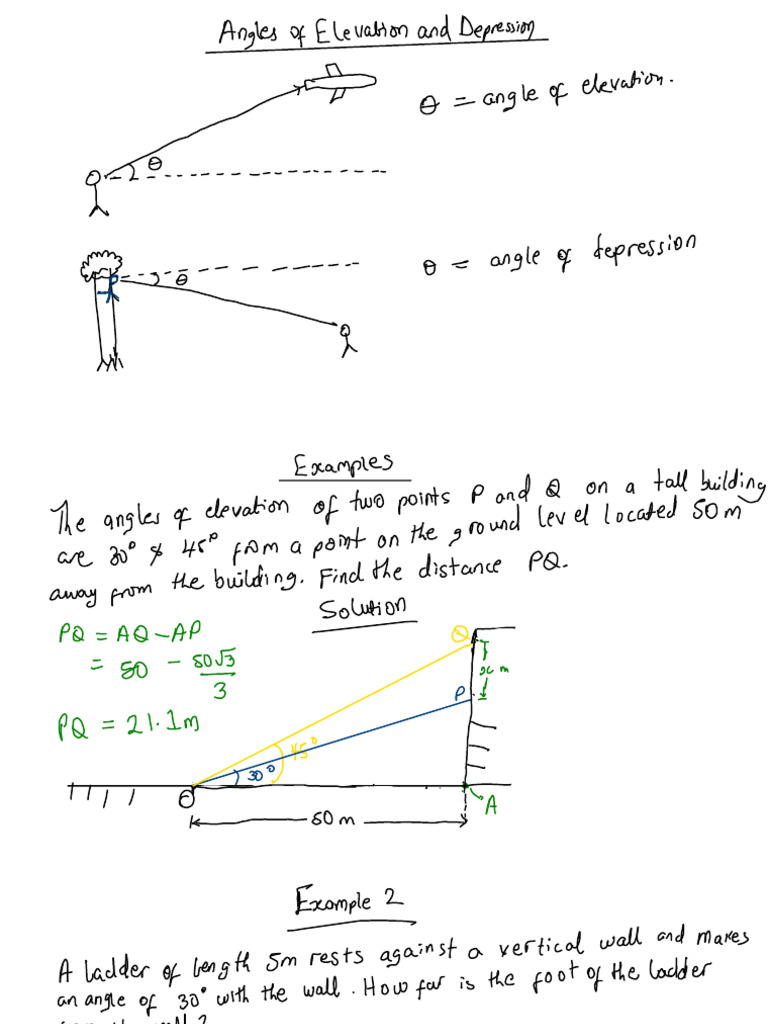 Angles of Elevation and Depression
θ
θ = angle of elevation.
θ
θ = angle of depression
Examples
The angles of elevation of two points P and Q on a tall building
are 30° & 45° from a point on the ground level located 50m
away from the building. Find the distance PQ.
Solution
PQ = AQ - AP
= 50 - 50√3/3
PQ = 21.1m
Q
x m
P
45°
30°
O
A
50 m
Example 2
A ladder of length 5m rests against a vertical wall and makes
an angle of 30° with the wall. How far is the foot of the ladder
from the wall?